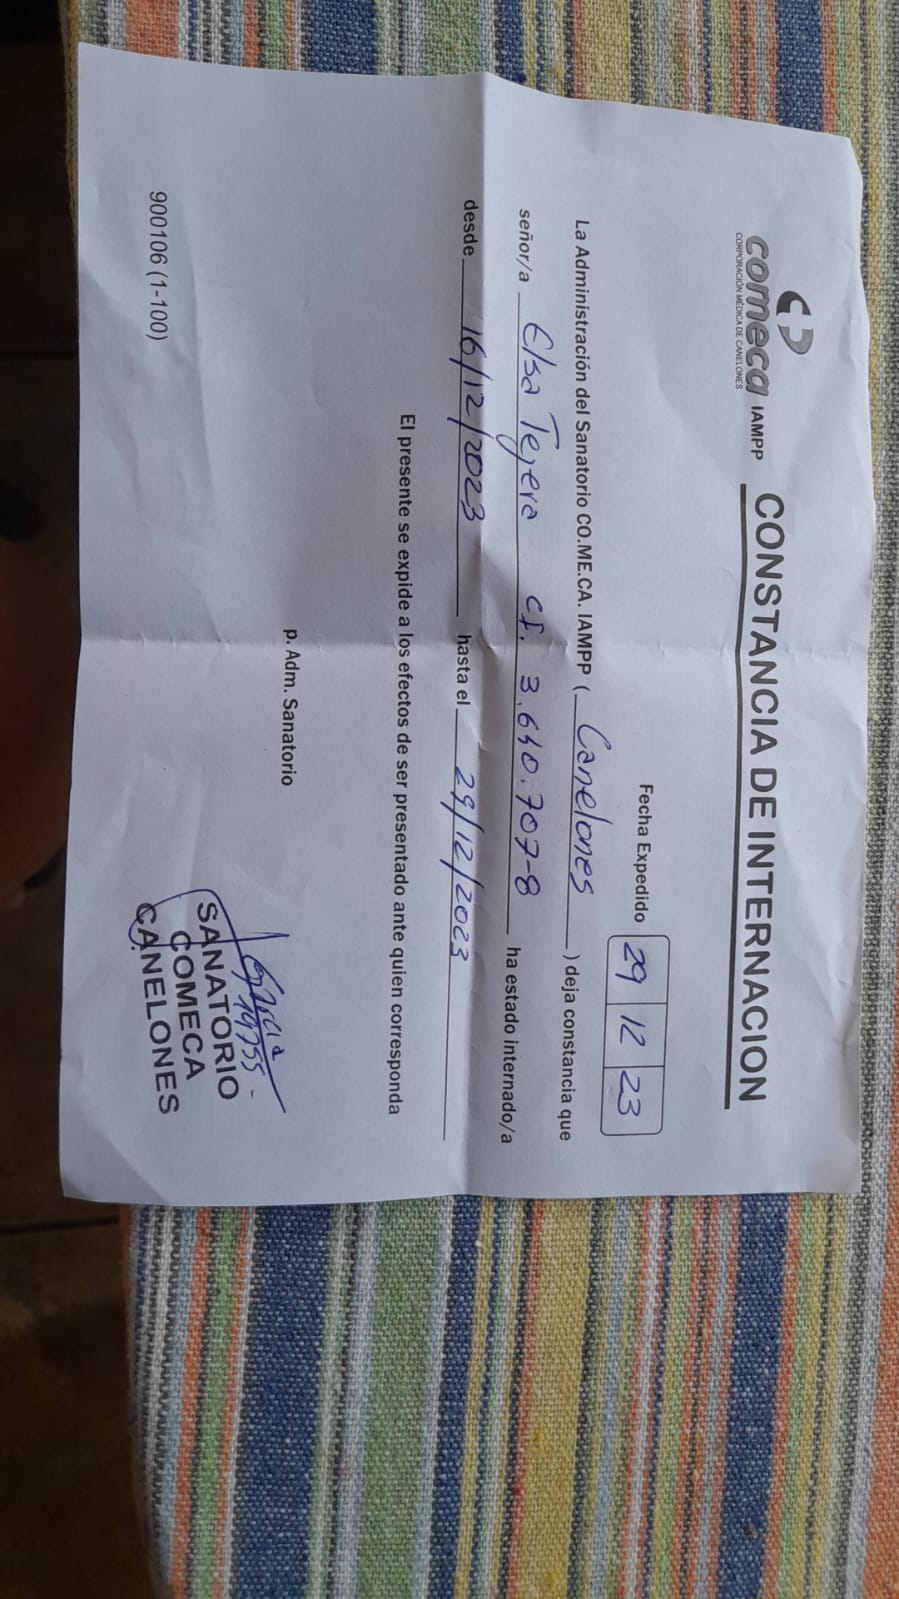 comeca IAMPP CONSTANCIA DE INTERNACION
CORPORACIÓN MÉDICA DE CANELONES
Fecha Expedido 29 12 23
La Administración del Sanatorio CO.ME.CA. IAMPP ( Canelones ) deja constancia que
señor/a Elsa Tejera CI. 3.640.707-8 ha estado internado/a
desde 16/12/2023 hasta el 29/12/2023
El presente se expide a los efectos de ser presentado ante quien corresponda
p. Adm. Sanatorio
Garcia
19755-
SANATORIO
COMECA
CANELONES
900106 (1-100)